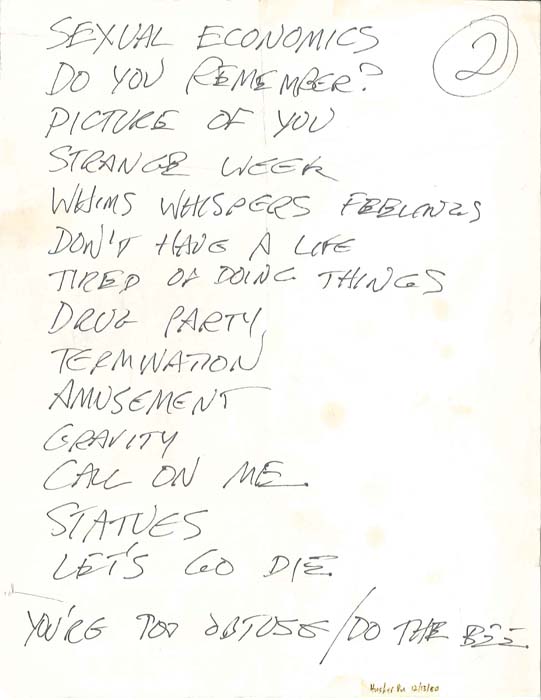 2
SEXUAL ECONOMICS
DO YOU REMEMBER?
PICTURE OF YOU
STRANGE WEEK
WHIMS WHISPERS FEELINGS
DON'T HAVE A LIFE
TIRED OF DOING THINGS
DRUG PARTY
TERMINATION
AMUSEMENT
GRAVITY
CALL ON ME
STATUES
LET'S GO DIE
YOU'RE TOO OBTUSE/DO THE BEE
Husker Du 12/13/80